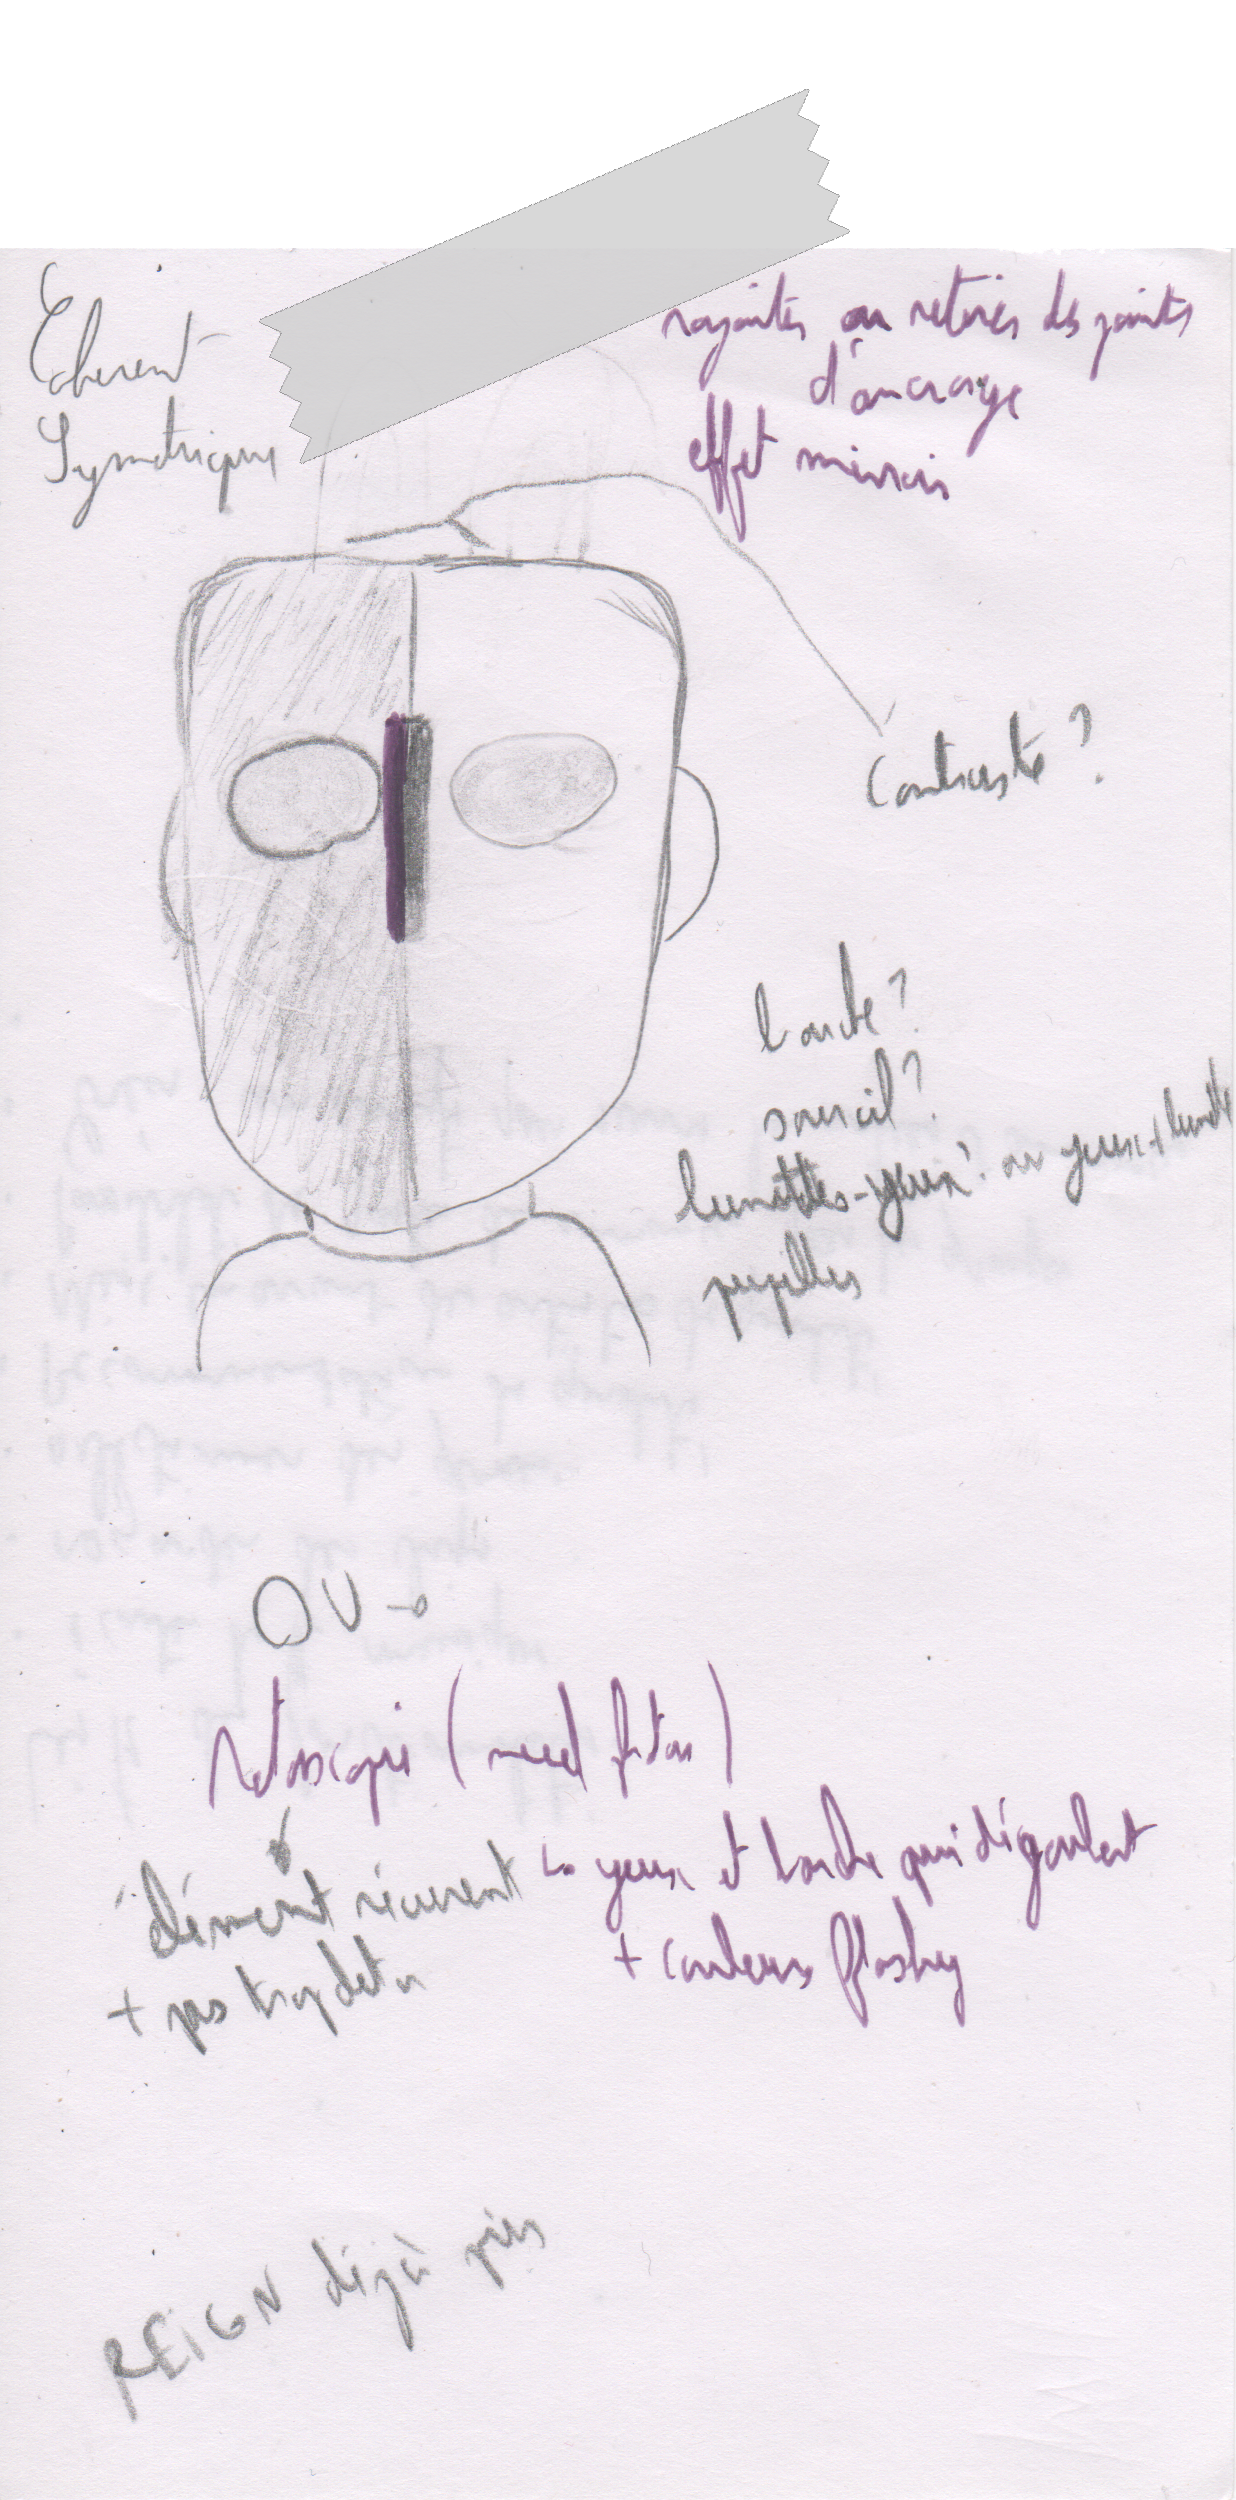 Coherent
Symetrique
rajoutés ou retirés des points
d'ancrage
effet miroir
Contraste ?
bouche ?
sourcil ?
lunettes-yeux ? ou yeux + lunette
pupilles
OU →
Rotoscopie (need photos)
élément récurent
+ pas trop det
↳ yeux et bouche qui dégoulent
+ couleurs flashy
REIGN déjà pris